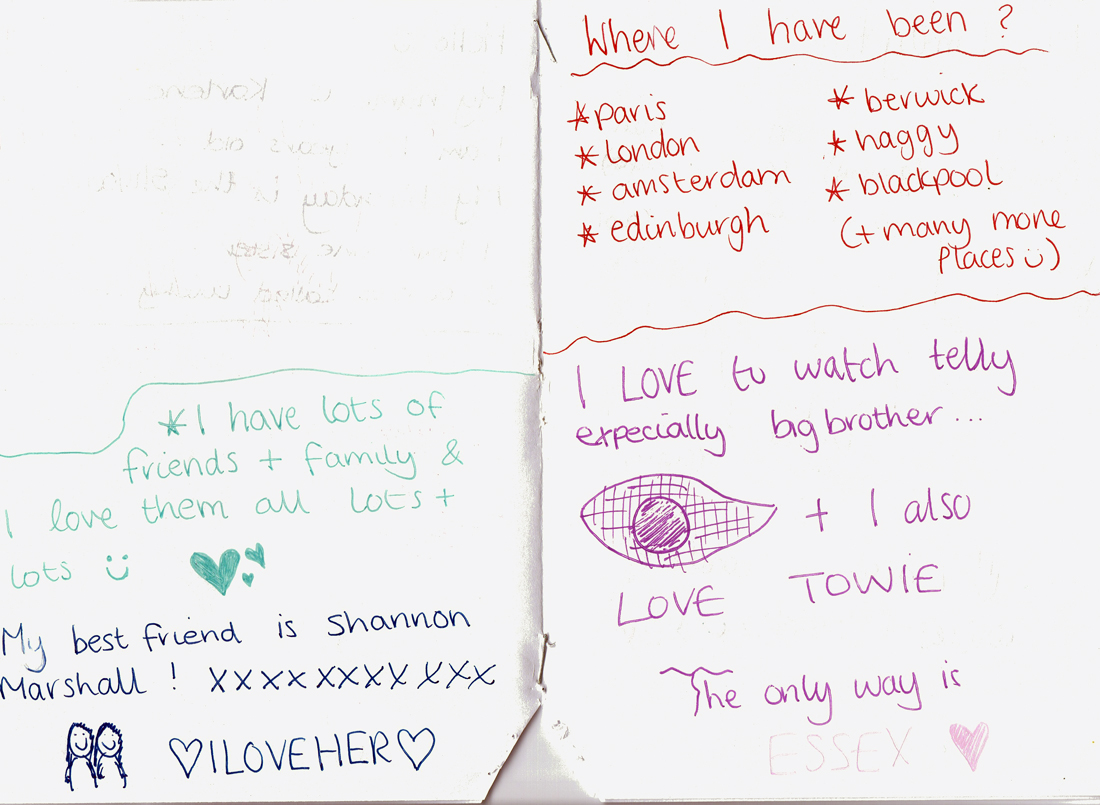 *I have lots of
friends + family &
I love them all lots +
lots
My best friend is Shannon
Marshall ! xxxxxxxxxxx
I LOVE HER
Where I have been ?
*paris
*london
*amsterdam
*edinburgh
*berwick
*haggy
*blackpool
(+ many more
places)
I LOVE to watch telly
expecially big brother...
+ I also
LOVE TOWIE
The only way is
ESSEX